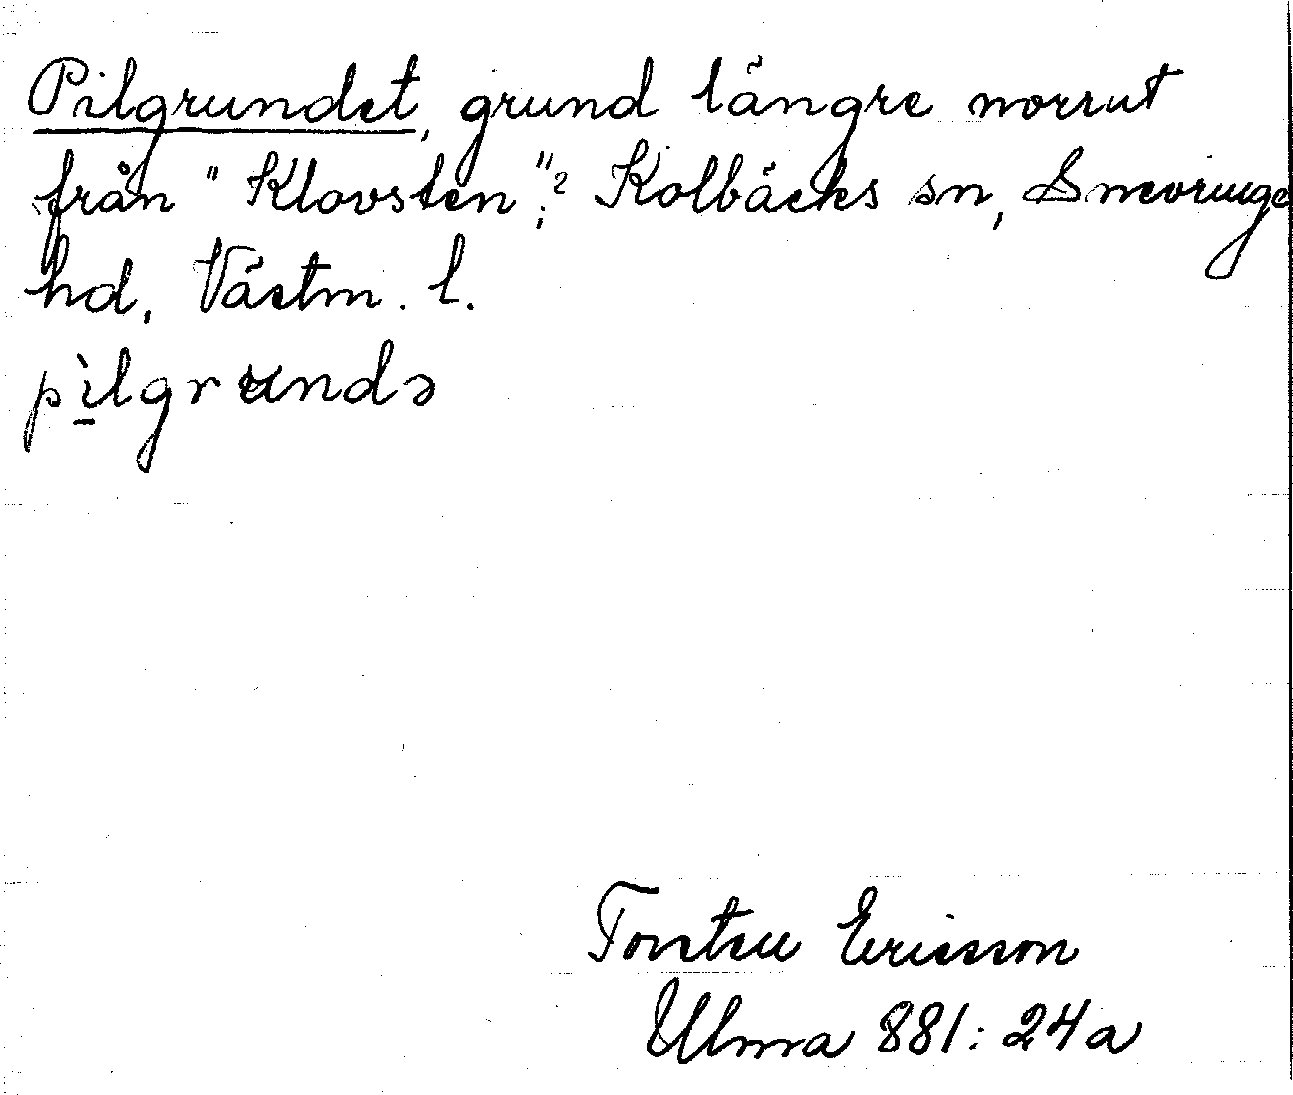 Pilgrundet, grund längre norrut
från "Klovsten";? Kolbäcks sn, Snevringe
hd, Västm. l.
pìlgrundə
Torsten Ericsson
Ulma 881:24a